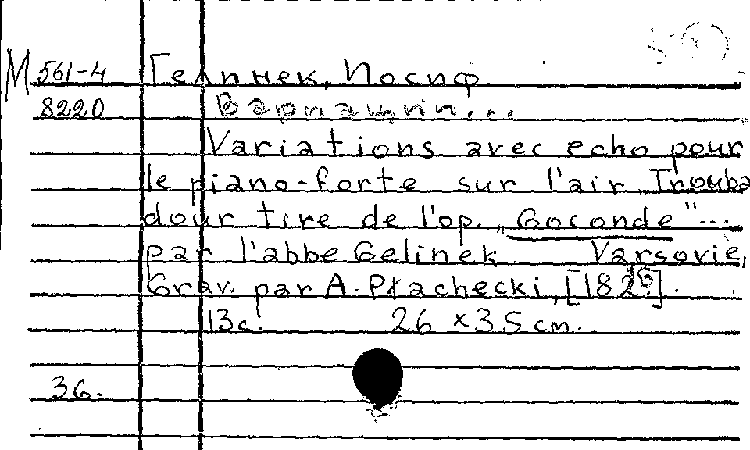 М 561-4 Гелинек, Иосиф
8220 Вариации...
Variations avec echo pour
le piano-forte sur l'air Trouba
dour tire de l'op. "Goconde"...
par l'abbe Gelinek Varsovie,
Grav. par A. Płachecki, [182?].
13c. 26 x 35 cm.
36.